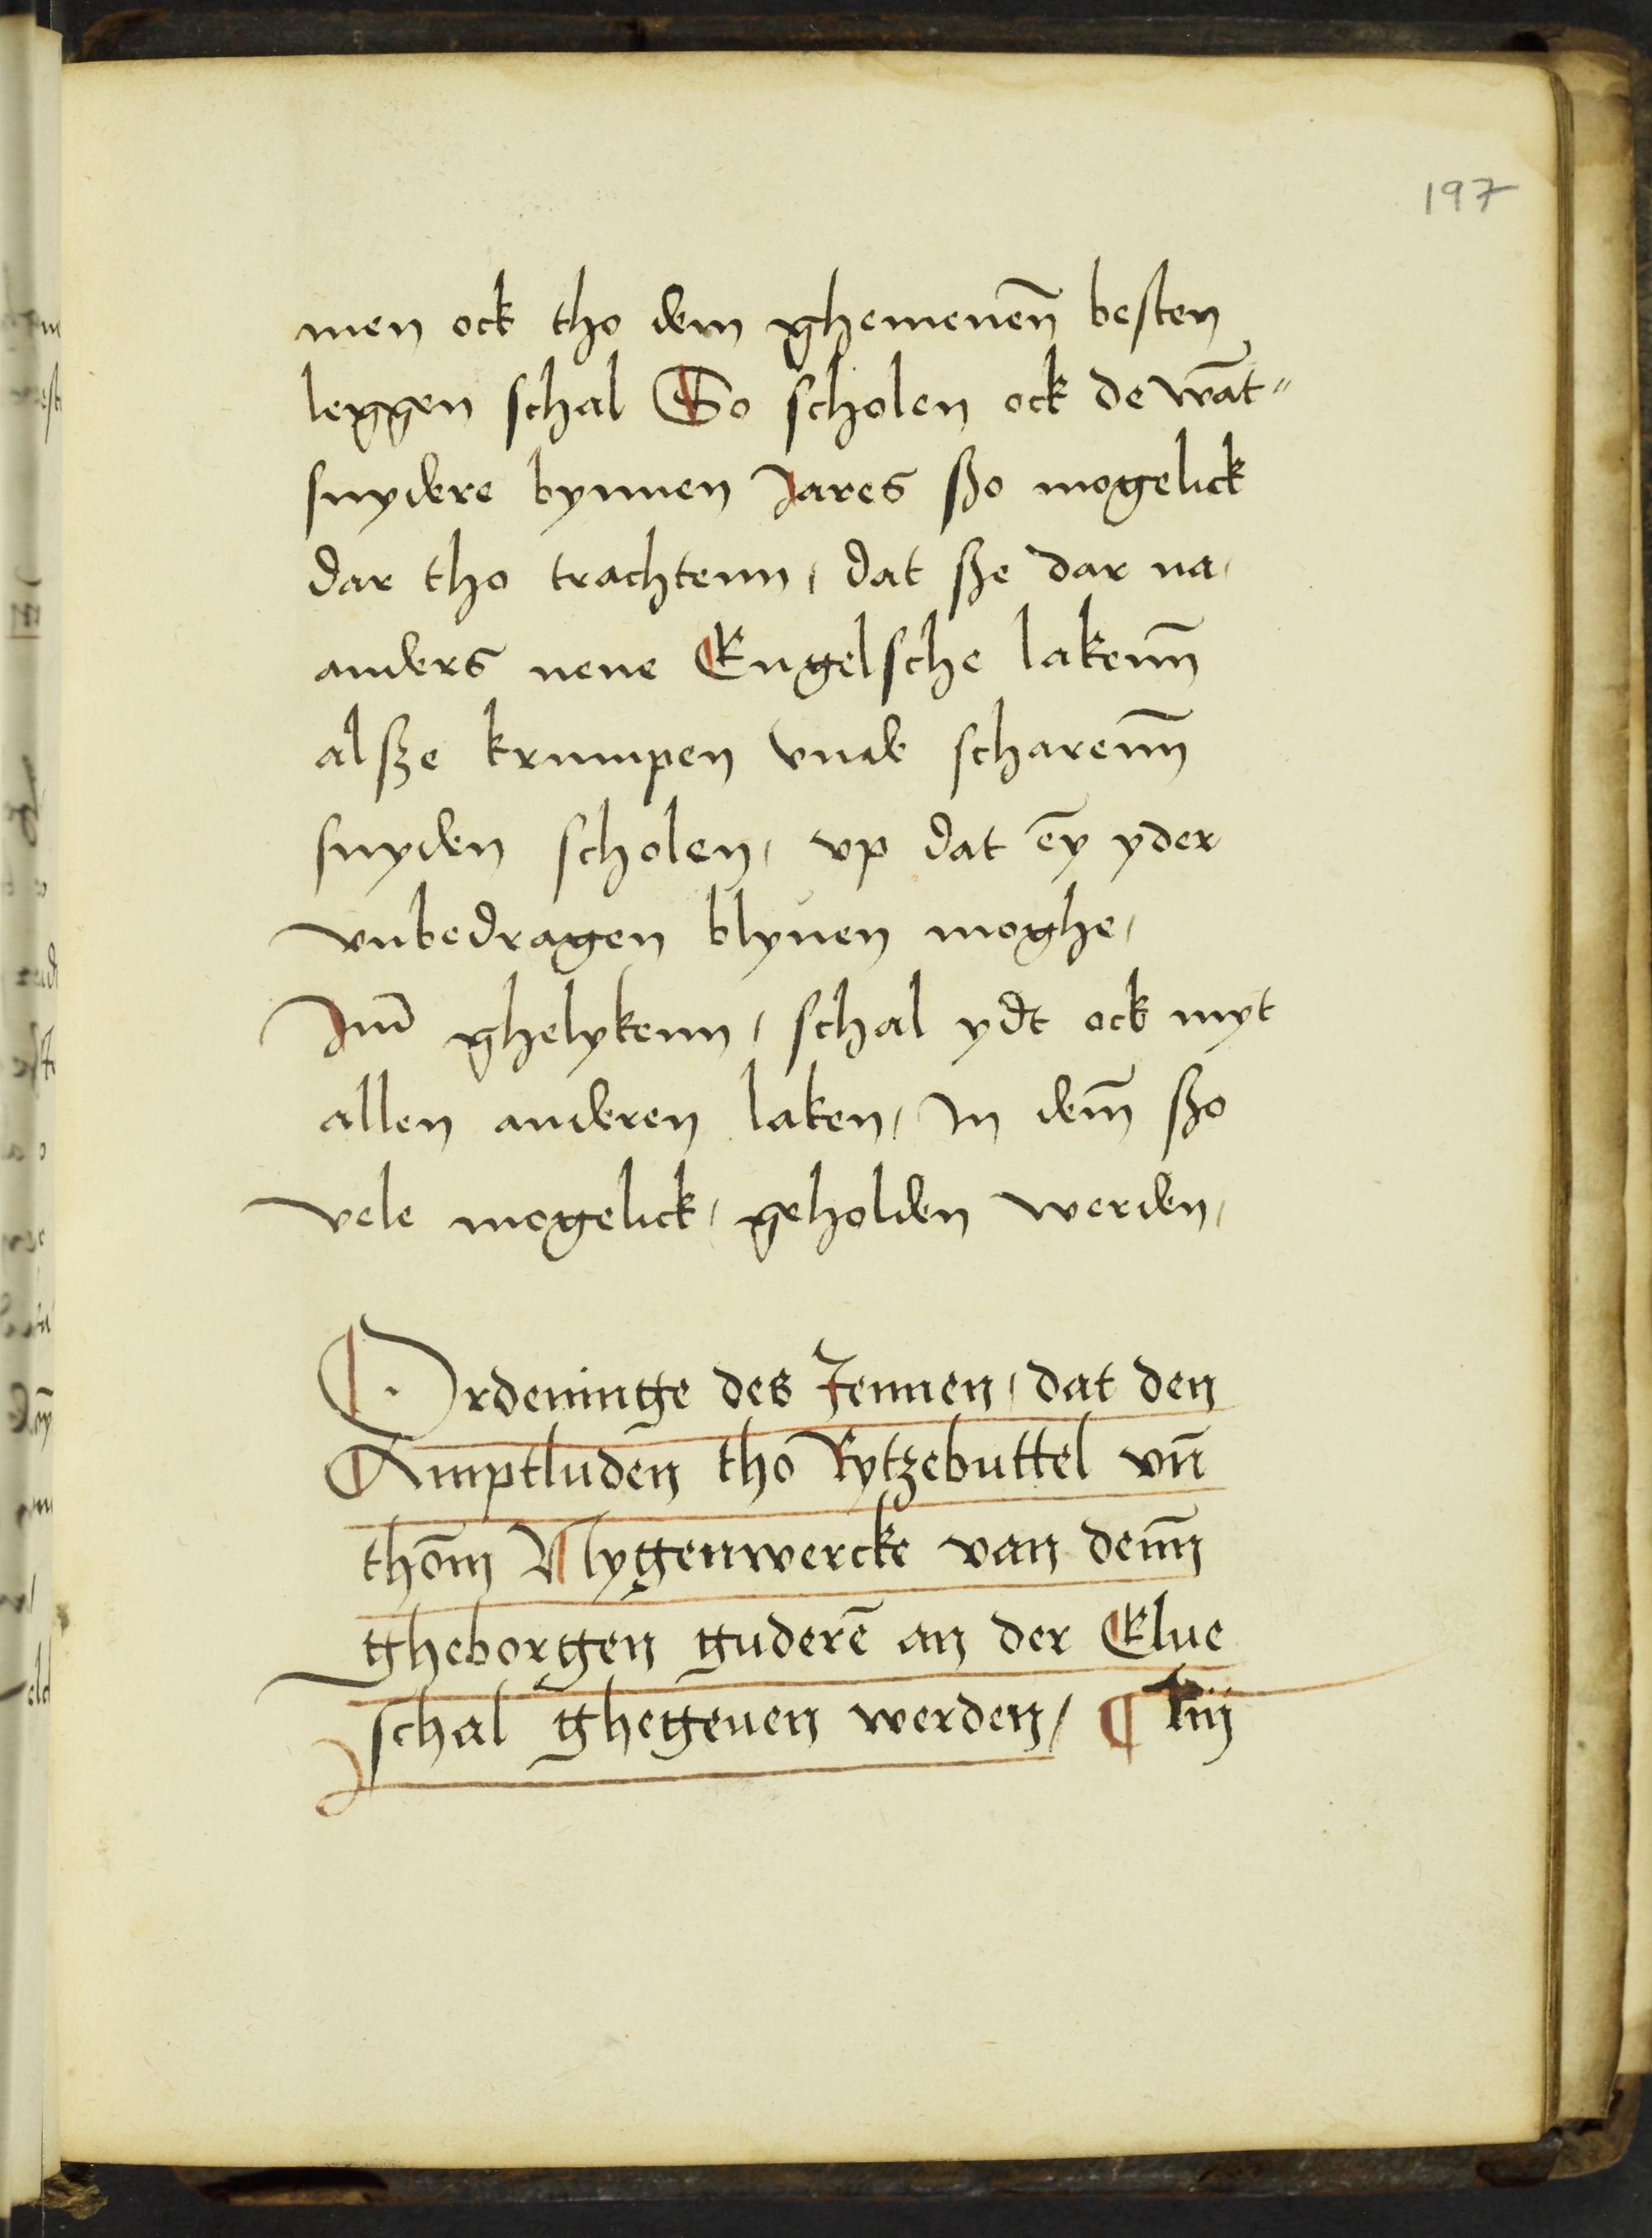 197
men ock tho dem ghemenēn besten
leggen schal So scholen ock de wāt-
snydere bynnen Jares szo mogelick
dar tho trachtenn, dat sze dar na,
anders nene Engelsche lakenn̄
alsze krumpen vnde scharenn̄
snyden scholen, vp dat eȳ yder
vnbedragen blyuen moghe,
Jm̄ ghelykenn, schal ydt ock myt
allen anderen laken, In dem̄ szo
vele mogelick, geholden werden,
Ordeninge des Jennen, dat den
Amptluden tho Rytzebuttel vn̄
thōm Nygenwercke van demn̄
gheborgen guderē an der Elue
schal ghegeuen werden, ¶ liij